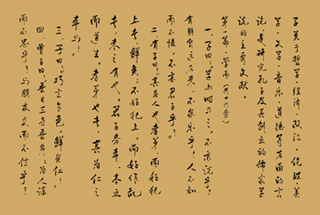 子关于哲学、经济、政治、伦理、美
学、文学、音乐、道德等方面的言
论,是研究孔子及其创立的儒家学
说的主要文献。
第一篇 学而(共十六章)
一、子曰:学而时习之,不亦说乎!
有朋自远方来,不亦乐乎!人不知
而不愠,不亦君子乎!
二、有子曰:其为人也孝弟,而好犯
上者,鲜矣;不好犯上,而好作乱
者,未之有也。君子务本,本立
而道生。孝弟也者,其为仁之
本与!
三、子曰:巧言令色,鲜矣仁!
四、曾子曰:吾日三省吾身:为人谋
而不忠乎?与朋友交而不信乎?